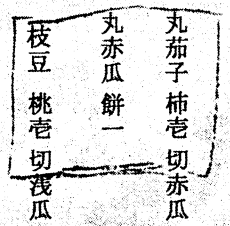 丸茄子 柿壱 切赤瓜
丸赤瓜 餅一
枝豆 桃壱 切浅瓜